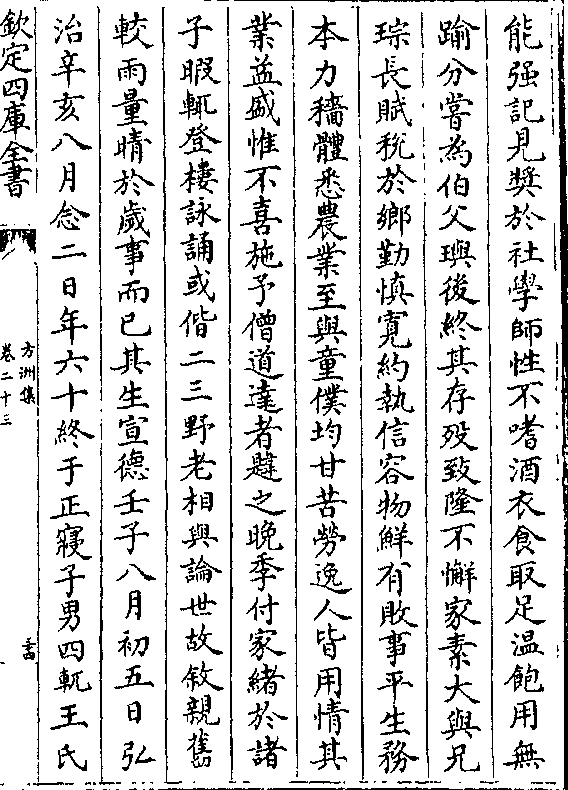 能强記見奬於社學師性不嗜酒衣食取足温飽用無
踰分嘗為伯父璵後終其存殁致隆不懈家素大與兄
琮長賦税於鄉勤慎寛約執信容物鮮有敗事平生務
本力穡體悉農業至與童僕均甘苦勞逸人皆用情其
業益盛惟不喜施予僧道達者韙之晚季付家緒於諸
子暇輒登樓詠誦或偕二三野老相與論世故敘親舊
較雨量晴於歲事而已其生宣德壬子八月初五日弘
治辛亥八月念二日年六十終于正寢子男四軏王氏
欽定四庫全書
方洲集
卷二十三